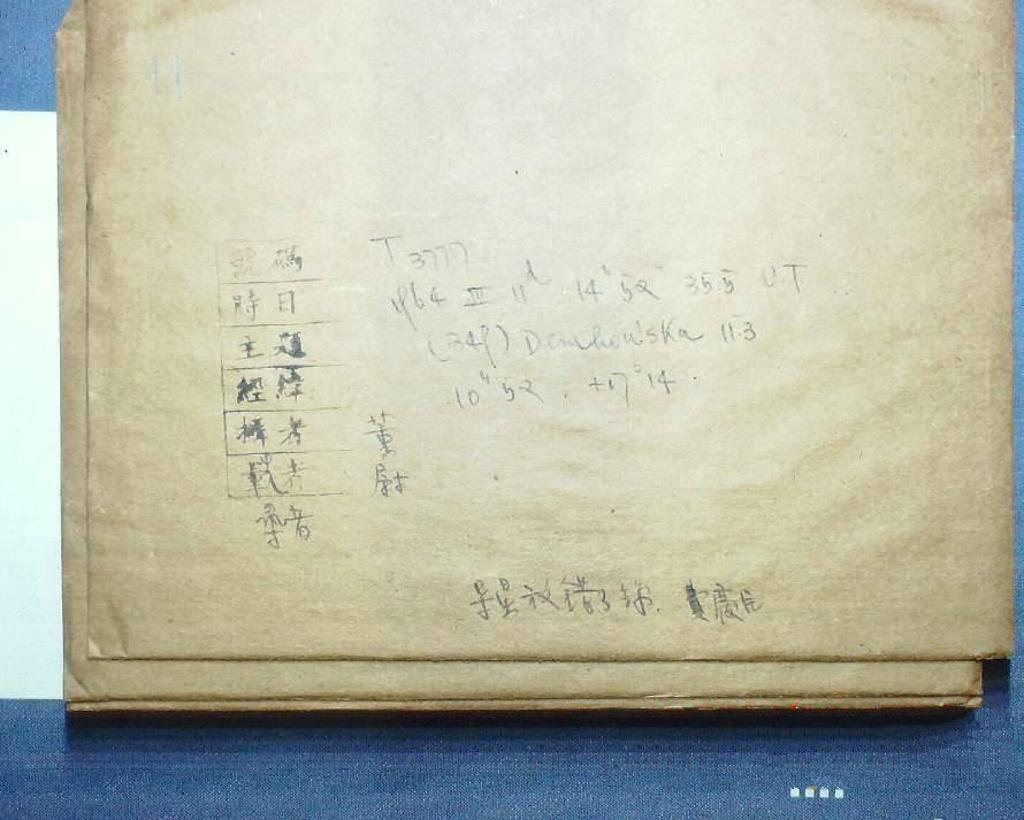 號碼 T 3777
時日 1964 III 11d 14h 52 355 UT
主題 (349) Dembowska 11.3
經緯 10h 52 , +17° 14
攝者 董
載者 尉
導者
导星放错了 費慶民